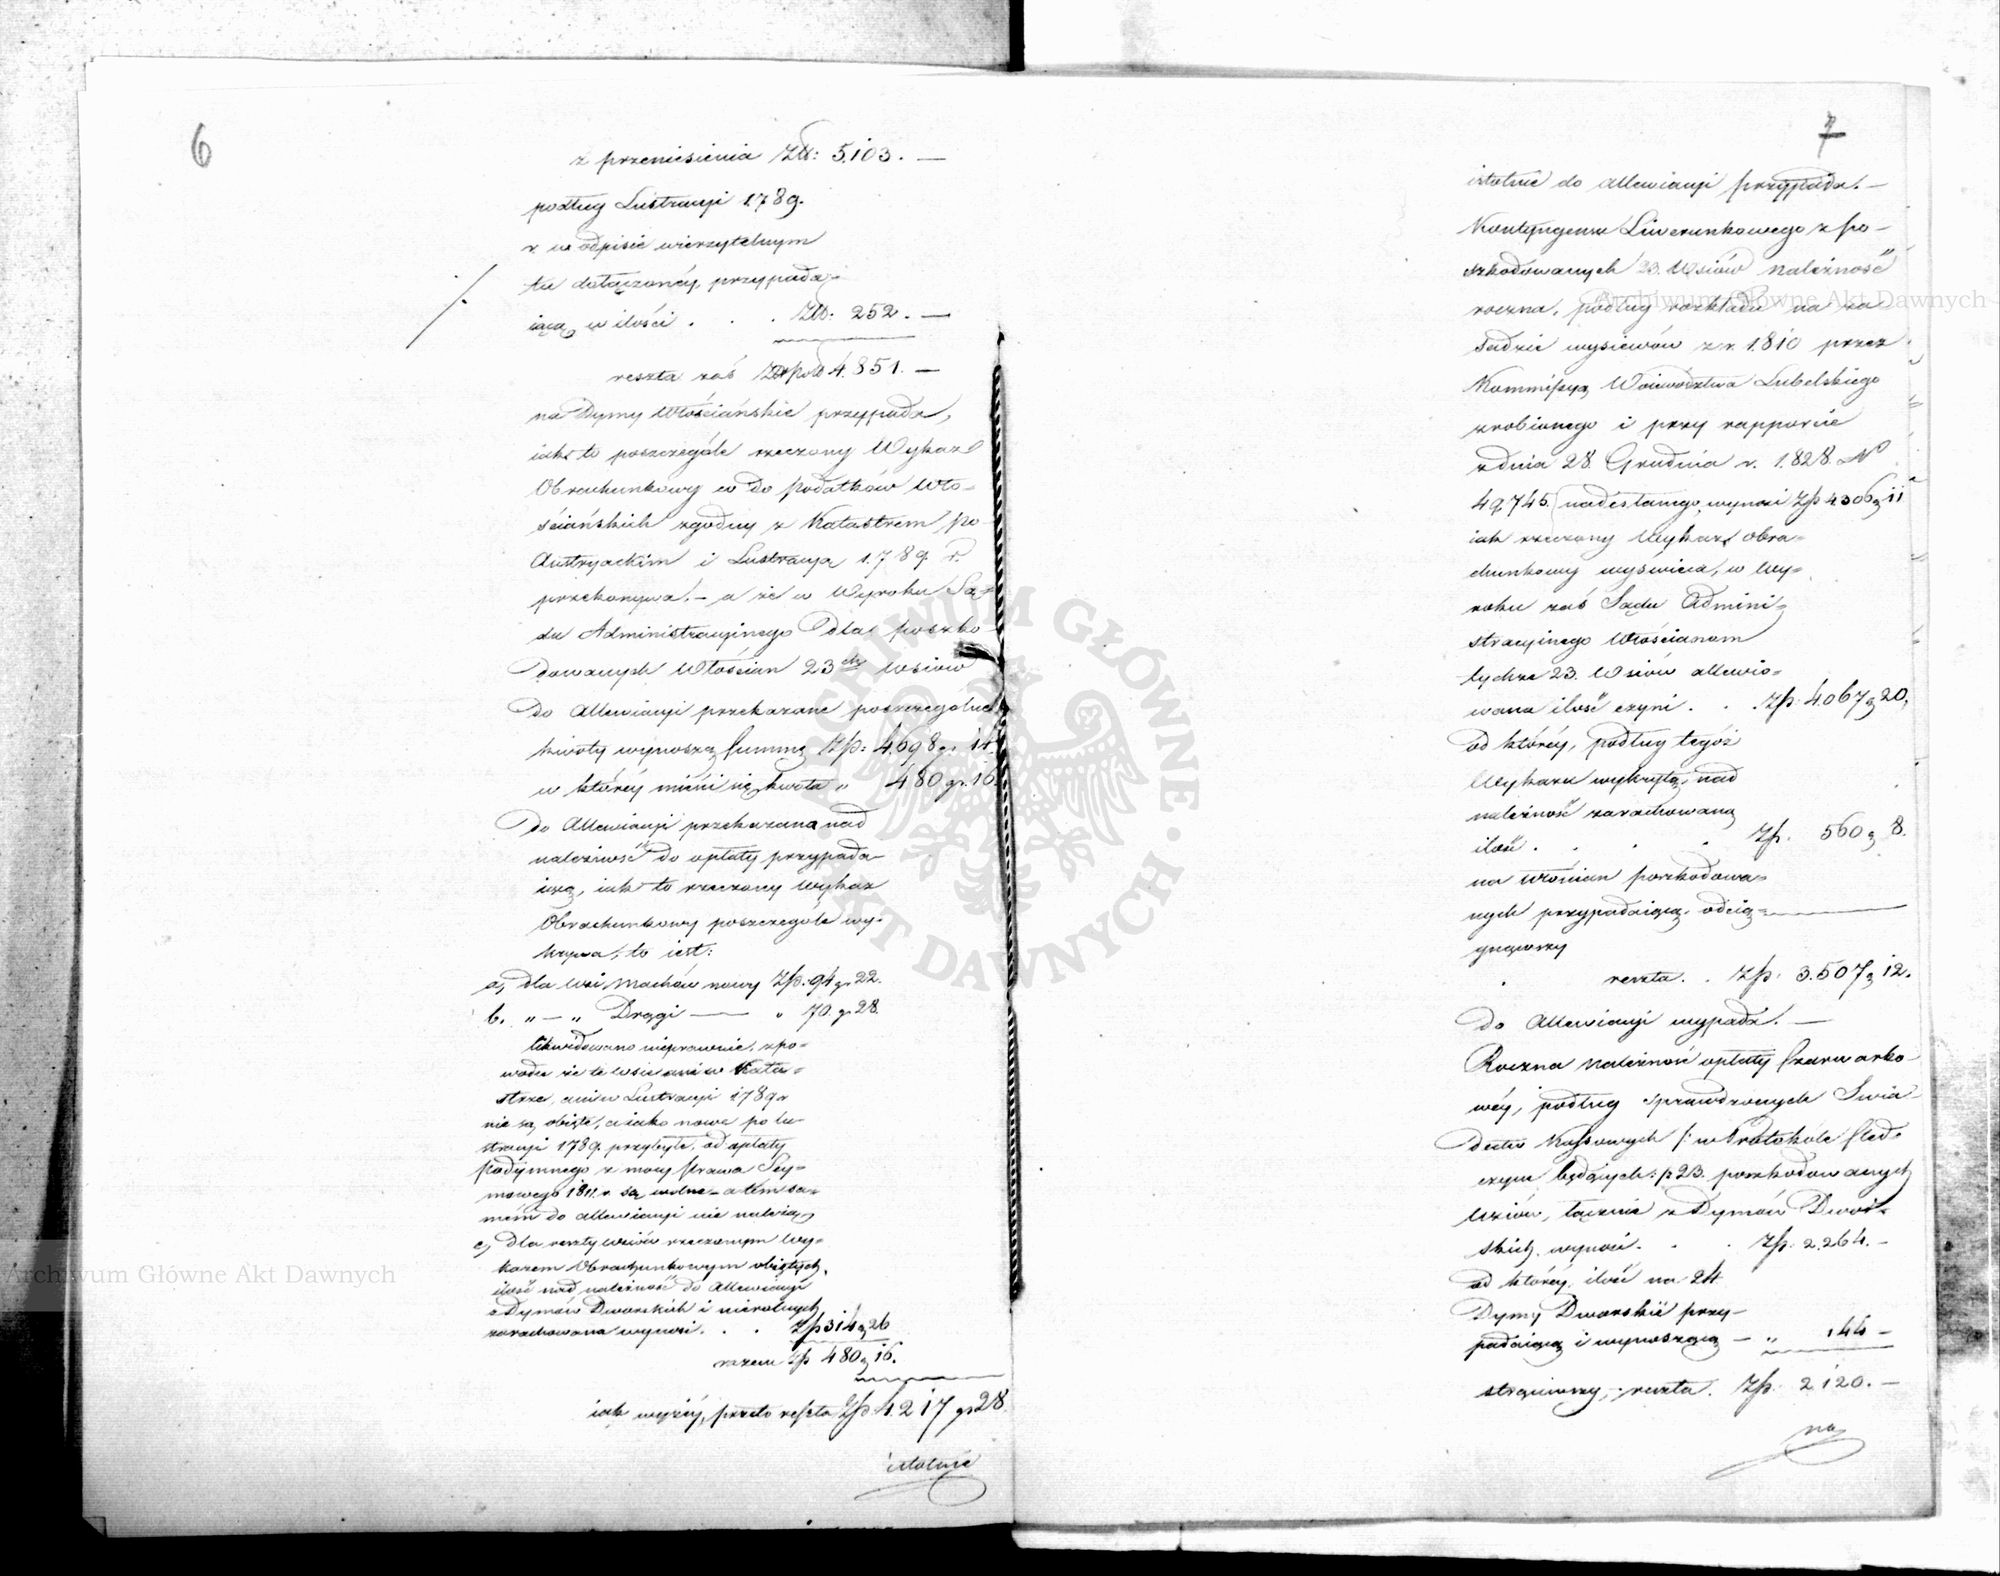 6
z przeniesienia Złł: 5.103. —
podług Lustracyi 1789.
r. w odpisie wierzytelnym
tu dołączonéy, przypada-
iącą w ilości . . . Złł: 252. —
reszta zaś 4.851. —
na Dymy Włościańskie przypada,
iak to poszczególe rzeczony Wykaz
Obrachunkowy co do podatków Wło-
ściańskich zgodny z Katastrem po
Austryackim i Lustracyą 1789 r.
przekonywa. — a że w Wyroku Są-
du Administracyinego dla poszko-
dowanych Włościan 23ch wsiów
do Allewiacyi przekazane poszczególne
kwoty wynoszą summę Złp: 4.698 gr 14
w któréy mieści się kwota " 480 gr. 16.
do Allewiacyi przekazana nad
należność do opłaty przypada-
iącą, iak to rzeczony Wykaz
Obrachunkowy poszczególe wy-
krywa, to iest:
a, dla wsi Machów nowy Złp. 94 gr 22.
b. " — " Drągi — " 70. gr 28.
likwidowano nieprawnie, z po-
wodu że te wsie ani w Kata-
strze, ani w Lustracyi 1789 r
nie są obięte, a iako nowe po lu-
stracyi 1789. przybyłe, od opłaty
podymnego z mocy prawa Sey-
mowego 1811. r. są wolne — a tém sa-
mém do allewiacyi nie należą,
c, dla reszty wsiów rzeczonym Wy-
kazem Obrachunkowym obiętych,
ilość nad należność do Allewiacyi
z Dymów Dworskich i nierolnych
zarachowana wynosi. . . Złp 314 g 26
razem Złp 480 g 16.
iak wyżéy, przeto reszta Złp. 4.217 gr 28
istotnie
7
istotnie do allewiacyi przypada. —
Kontyngensu Liwerunkowego z po-
szkodowanych 23. Wsiów należność
roczna, podług rozkładu na za
sadzie wysiewów z r. 1810 przez
Kommissyą Woiewództwa Lubelskiego
zrobionego i przy rapporcie
z dnia 28. Grudnia r. 1828. No
49,745. nadesłanego, wynosi Złp 4306 g 11
iak rzeczony Wykaz obra-
chunkowy wyświeca, w Wy-
roku zaś Sądu Admini-
stracyinego Włościanom
tychże 23. Wsiów allewio-
wana ilość czyni . . Złp: 4.067 g 20,
od któréy, podług tegóż
Wykazu wykrytą, nad
należność zarachowaną
ilość . . . . Złp. 560 g 8.
na włościan poszkodowa-
nych przypadaiącą, odcią-
gnąwszy
reszta. . Złp: 3.507 g 12.
do Allewiacyi wypada. —
Roczna należność opłaty Szarwarko-
wéy, podług sprawdzonych Świa-
dectw Kassowych /: w Protokóle śled-
czym będących :/ z 23. poszkodowanych
Wsiów, łącznie z Dymów Dwor-
skich, wynosi. . . Złp: 2.264. —
od któréy, ilość na 24
Dymy Dworskie przy-
padaiącą i wynoszącą — " 144 —
strąciwszy, reszta. Złp: 2120. —
na
Archiwum Główne Akt Dawnych
Archiwum Główne Akt Dawnych
ARCHIWUM GŁÓWNE AKT DAWNYCH